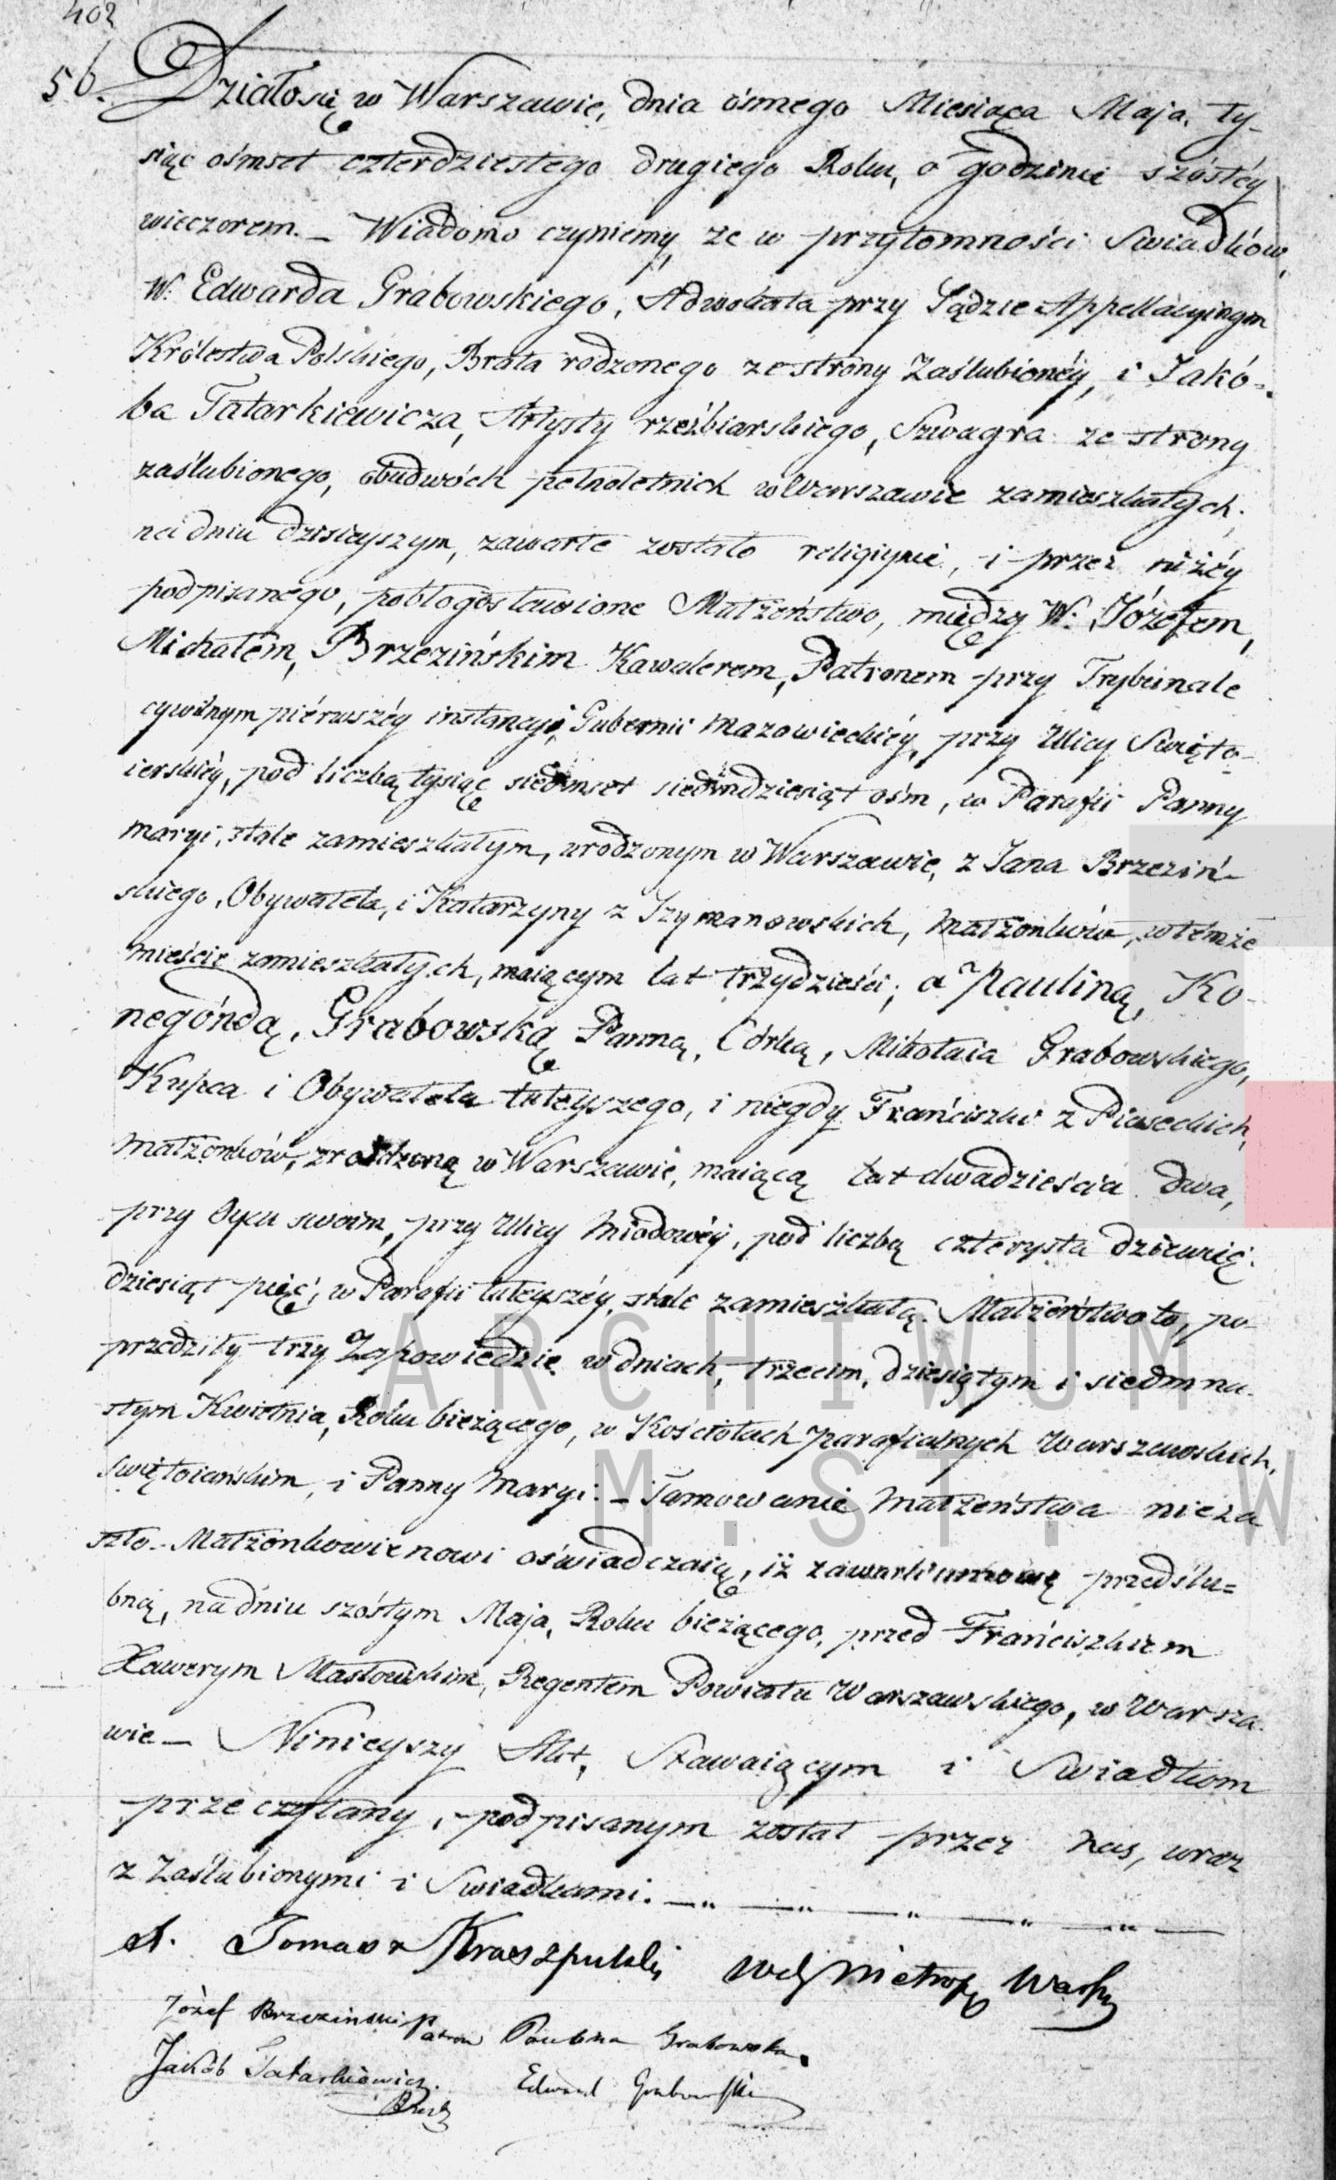 402
56. Działo się w Warszawie, dnia ósmego Miesiąca Maja, ty-
siąc ośmset czterdziestego drugiego Roku, o godzinie szóstéy
wieczorem. – Wiadomo czyniemy, że w przytomności Swiadków,
W. Edwarda Grabowskiego, Adwokata przy Sądzie Appellacyinym
Królestwa Polskiego, Brata rodzonego ze strony Zaślubionéy, i Jakó-
ba Tatarkiewicza, Artysty rzeźbiarskiego, Szwagra ze strony
zaślubionego, obudwóch pełnoletnich w Warszawie zamieszkałych,
na dniu dzisieyszym, zawarte zostało religiynie, i przez niżéy
podpisanego, pobłogosławione Małżeństwo, między W. Józefem,
Michałem, Brzezińskim Kawalerem, Patronem przy Trybunale
cywilnym piérwszéy instancyi, Gubernii Mazowieckiéy, przy Ulicy Swięto-
ierskiéy, pod liczbą tysiąc siedmset siedmdziesiąt ośm, w Parafii Panny
Maryi, stale zamieszkałym, urodzonym w Warszawie, z Jana Brzeziń-
skiego, Obywatela, i Katarzyny z Szymanowskich, Małżonków, w témże
mieście zamieszkałych, maiącym lat trzydzieści; a Pauliną, Ko-
negóndą, Grabowską Panną, Córką, Mikołaia Grabowskiego,
Kupca i Obywatela tuteyszego, i niegdy Franciszki z Piaseckich,
Małżonków, zrodzoną w Warszawie, maiącą lat dwadzieścia dwa,
przy Oycu swoim, przy Ulicy Miodowéy, pod liczbą czterysta dziewię-
dziesiąt pięć, w Parafii tuteyszéy, stale zamieszkałą. Małżeństwo to, po-
przedziły trzy Zapowiedzie w dniach, trzecim, dziesiątym i siedmna-
stym Kwietnia, Roku bieżącego, w Kościołach parafialnych Warszawskich,
Swiętoiańskim, i Panny Maryi. – Tamowanie Małżeństwa nieza
szło. – Małżonkowie nowi oświadczaią, iż zawarli umowę przedślu=
bną, na dniu szóstym Maja, Roku bieżącego, przed Franciszkiem
Xawerym Masłowskim, Regentem Powiatu Warszawskiego, w Warsza-
wie – Ninieyszy Akt, Stawaiącym i Swiadkom
przeczytany, podpisanym został przez nas, wraz
z Zaślubionymi i Swiadkami. – „ – „ – „ – „ – „ –
Tomasz
Józef Brzeziński Patron Paulina Grabowska.
Jakób Tatarkiewicz. Edward Grabowski
ARCHIWUM
M. ST. W